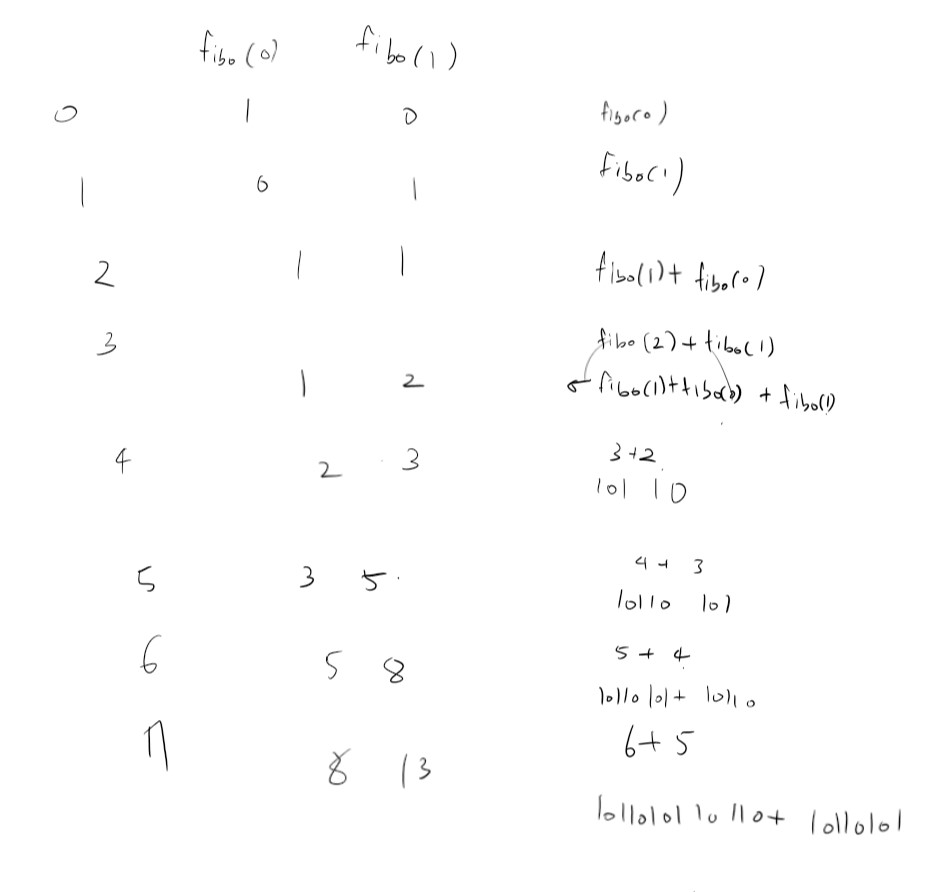 fibo(0) fibo(1)
0 1 0 fibo(0)
1 0 1 fibo(1)
2 1 1 fibo(1)+ fibo(0)
3 fibo(2)+fibo(1)
1 2 ← fibo(1)+fibo(0) + fibo(1)
4 2 3 3+2
101 10
5 3 5. 4+ 3
10110 101
6 5 8 5+ 4
10110101+ 10110
7 8 13 6+ 5
1011010110110+ 10110101